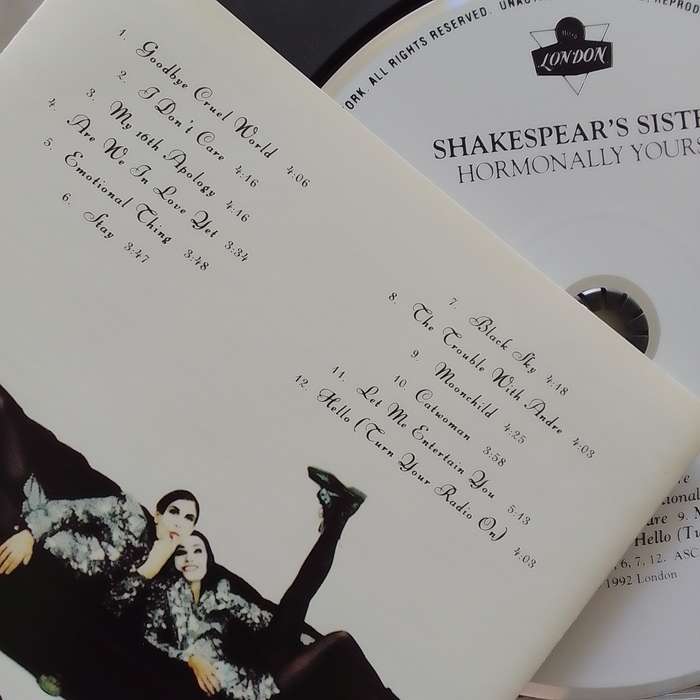 1. Goodbye Cruel World 4:06
2. I Don't Care 4:16
3. My 16th Apology 4:16
4. Are We In Love Yet 3:34
5. Emotional Thing 3:48
6. Stay 3:47
7. Black Sky 4:18
8. The Trouble With Andre 4:03
9. Moonchild 4:25
10. Catwoman 3:58
11. Let Me Entertain You 5:13
12. Hello (Turn Your Radio On) 4:03
ORK. ALL RIGHTS RESERVED.
REPROD
LONDON
SHAKESPEAR'S SISTE
HORMONALLY YOURS
Hello (Tu
6, 7, 12. ASC
1992 London